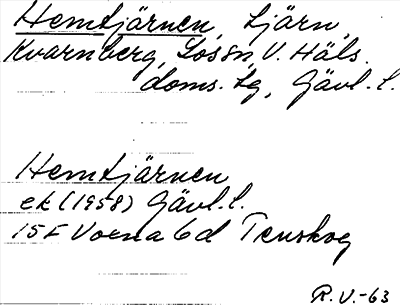 Hemtjärnen, tjärn,
Kvarnberg, Los sn, V. Häls.
doms. tg, Gävl. l.
Hemtjärnen
ek (1958) Gävl. l.
15F Voxna 6d Tenskog
R.V.-63